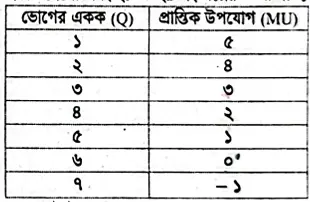 ভোগের একক (Q) প্রান্তিক উপযোগ (MU)
১ ৫
২ ৪
৩ ৩
৪ ২
৫ ১
৬ ০
৭ – ১